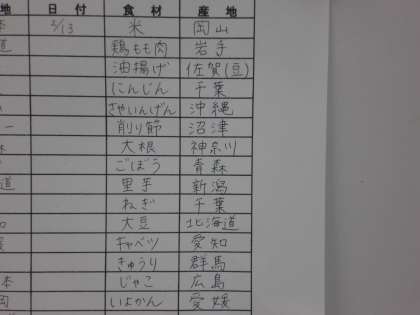 地 日付 食材 産地
2/13 米 岡山
道 鶏もも肉 岩手
油揚げ 佐賀(豆)
にんじん 千葉
さやいんげん 沖縄
削り節 沼津
大根 神奈川
ごぼう 青森
道 里芋 新潟
ねぎ 千葉
大豆 北海道
キャベツ 愛知
きゅうり 群馬
本 じゃこ 広島
岡 いよかん 愛媛